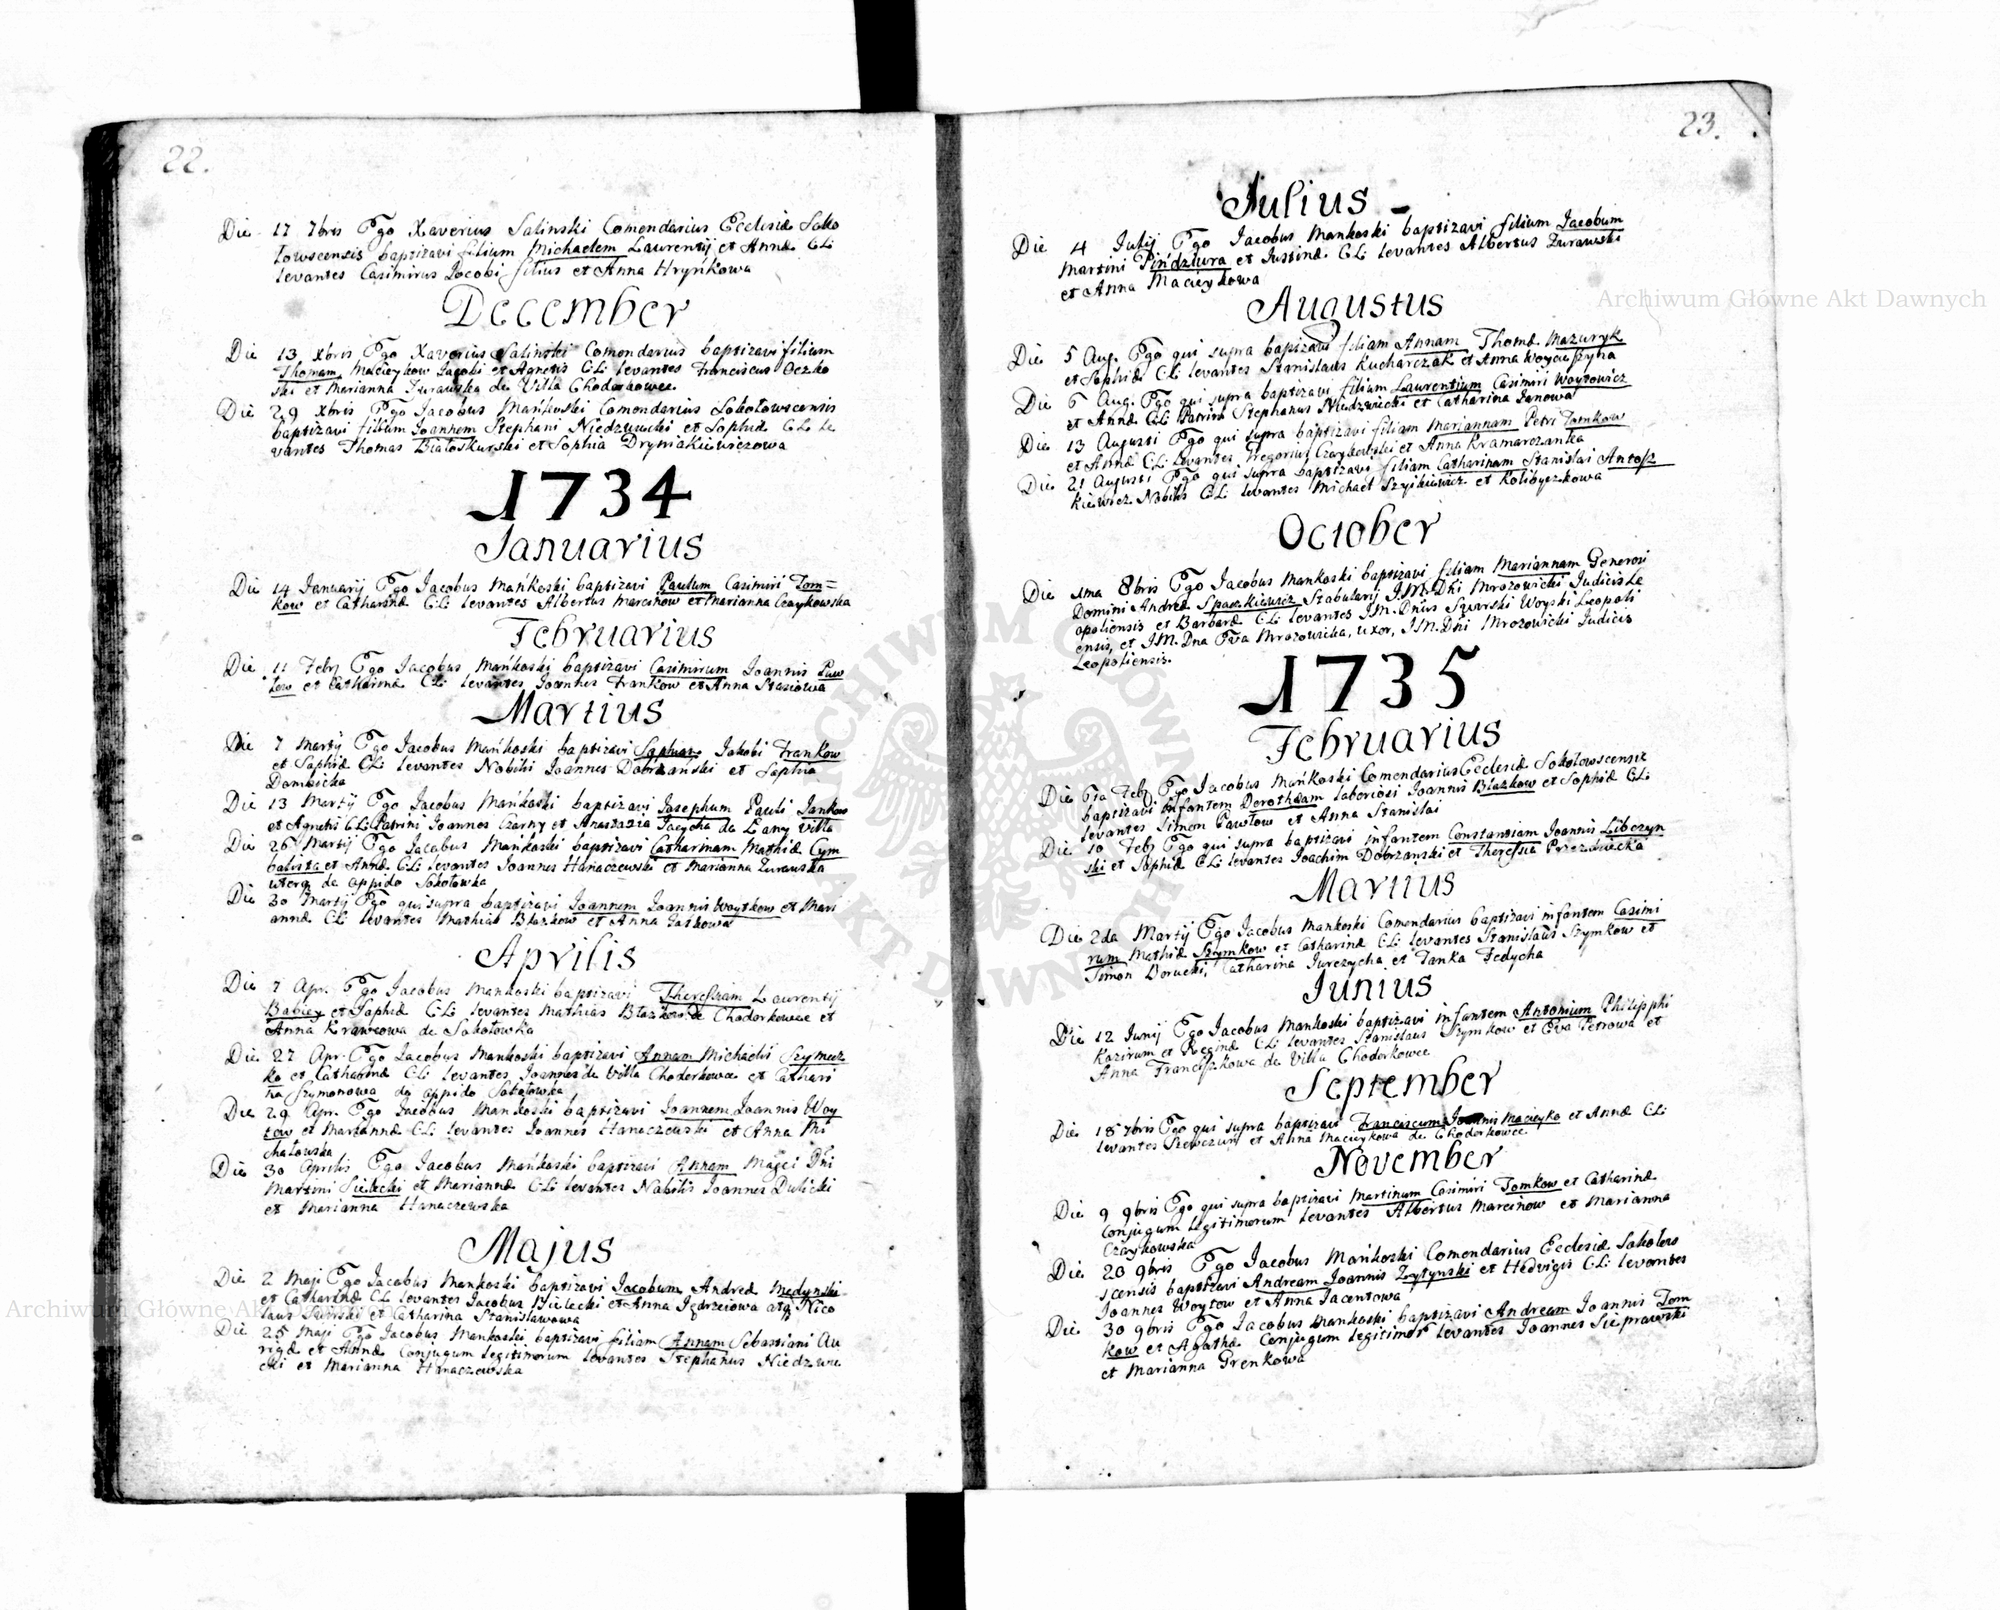 22.
Die 17 7bris Ego Xaverius Salinski Comendarius Ecclesiæ Soko
lowscensis baptizavi filium Michaelem Laurentij et Annæ CL:
levantes Casimirus Jacobi filius et Anna Hryńkowa
December
Die 13 Xbris Ego Xaverius Salinski Comendarius baptizavi filium
Thomam Macieykow Jacobi et Agnetis CL: levantes Franciscus Oczko
ski et Marianna Zurawska de Villa Chodorkowce
Die 29 Xbris Ego Jacobus Mańkoski Comendarius Sokołowscensis
baptizavi filium Joannem Stephani Niedzwiecki et Sophiæ CL: le
vantes Thomas Białoskurski et Sophia Drymiakiewiczowa
1734
Januarius
Die 14 Januarij Ego Jacobus Mańkoski baptizavi Paulum Casimiri Tom=
kow et Catharinæ CL: levantes Albertus Marcinow et Marianna Czaykowska
Februarius
Die 11 Febr Ego Jacobus Mańkoski baptizavi Casimirum Joannis Paw
low et Catharinæ CL: levantes Joannes Frankow et Anna Stasiowa
Martius
Die 7 Martij Ego Jacobus Mańkoski baptizavi Sophiam Jakobi Frankow
et Sophiæ CL: levantes Nobilis Joannes Dobrzański et Sophia
Dombicka
Die 13 Martij Ego Jacobus Mańkoski baptizavi Josephum Pauli Jankow
et Agnetis CL: Patrini Joannes Czarny et Anastazia Jacycha de Łany Villa
Die 26 Martij Ego Jacobus Mańkoski baptizavi Catharinam Mathiæ Cym
balista et Annæ CL: levantes Joannes Hanaczewski et Marianna Zurawska
uterq de oppido Sokołowka
Die 30 Martij Ego qui supra baptizavi Joannem Joannis Woytkow et Mari
annæ CL: levantes Mathias Błazkow et Anna Jaśkowa
Aprilis
Die 7 Apr. Ego Jacobus Mankoski baptizavi Theressiam Laurentij
Babiey et Sophiæ CL: levantes Mathias Błazkow de Chodorkowce et
Anna Krawcowa de Sokołowka
Die 27 Apr. Ego Jacobus Mankoski baptizavi Annam Michaelis Szymecz
ko et Catharinæ CL: levantes Joannes de Villa Chodorkowce et Cathari
na Szymonowa de oppido Sokołowka
Die 29 Apr. Ego Jacobus Mankoski baptizavi Joannem Joannis Woy
tow et Mariannæ CL: levantes Joannes Hanaczewski et Anna Mi
chałowska
Die 30 Aprilis Ego Jacobus Mańkoski baptizavi Annam Magci Dni
Martini Sielecki et Mariannæ CL: levantes Nobilis Joannes Dulicki
et Marianna Hanaczewska
Majus
Die 2 Maji Ego Jacobus Mankoski baptizavi Jacobum Andreæ Medynski
et Catharinæ CL: levantes Jacobus Bielecki et Anna Jędrzeiowa atq Nico
laus et Catharina Stanisławowa
Die 25 Maji Ego Jacobus Mankoski baptizavi filiam Annam Sebastiani Au
rigæ et Annæ Conjugum legitimorum levantes Stephanus Niedzwie
cki et Marianna Hanaczewska
23.
Julius
Die 4 Julij Ego Jacobus Mankoski baptizavi filium Jacobum
Martini Pińdziura et Justinæ CL: levantes Albertus Zurawski
et Anna Macieykowa
Augustus
Die 5 Aug. Ego qui supra baptizavi filiam Annam Thomæ Mazuryk
et Sophiæ CL: levantes Stanislaus Kucharczak et Anna Woyciszyna
Die 6 Aug: Ego qui supra baptizavi filium Laurentium Casimiri Woytowicz
et Annæ CL: Patrini Stephanus Niedzwiecki et Catharina Janowa
Die 13 Augusti Ego qui supra baptizavi filiam Mariannam Petri Tomkow
et Annæ CL: levantes Gregorius Czaykowski et Anna Kramarczanka
Die 21 Augusti Ego qui supra baptizavi filiam Catharinam Stanislai Antosz
kiewicz Nobilis CL: levantes Michael Szyikiewicz et Kolibyczkowa
October
Die 1ma 8bris Ego Jacobus Mankoski baptizavi filiam Mariannam Generosi
Domini Andreæ Spaszkiewicz Stabularij J.M. Dni Mrozowicki Judicis Le
opoliensis et Barbaræ CL: levantes J.M. Dnus Sgurski Woyski Leopoli
ensis, et J.M. Dna Eva Mrozowicka, uxor, J.M. Dni Mrozowicki Judicis
Leopoliensis.
1735
Februarius
Die 6ta Feb Ego Jacobus Mańkoski Comendarius Ecclesiæ Sokołowscensis
baptizavi infantem Dorotheam laboriosi Joannis Błazkow et Sophiæ CL:
levantes Simon Pawłow et Anna Stanislai
Die 10 Feb Ego qui supra baptizavi infantem Constantiam Joannis Libczyn
ski et Sophiæ CL: levantes Joachim Dobrzanski et Theressia Przezdziecka
Martius
Die 2da Martij Ego Jacobus Mankoski Comendarius baptizavi infantem Casimi
rum Mathiæ Szymkow et Catharinæ CL: levantes Stanislaus Szymkow et
Simon Dorucki, Catharina Jurczycha et Tanka Fedycha
Junius
Die 12 Junij Ego Jacobus Mankoski baptizavi infantem Antonium Philipphi
Kozirum et Reginæ CL: levantes Stanislaus Szymkow et Eva Petrowa et
Anna Franciszkowa de Villa Chodorkowce
September
Die 18 7bris Ego qui supra baptizavi Franciscum Joannis Macieyko et Annæ CL:
levantes Szewczuni et Anna Macieykowa de Chodorkowce
November
Die 9 9bris Ego qui supra baptizavi Martinum Casimiri Tomkow et Catharinæ
Conjugum legitimorum levantes Albertus Marcinow et Marianna
Czaykowska
Die 20 9bris Ego Jacobus Mańkoski Comendarius Ecclesiæ Sokolow
scensis baptizavi Andream Joannis Zrytynski et Hedvigis CL: levantes
Joannes Woytow et Anna Jacentowa
Die 30 9bris Ego Jacobus Mankoski baptizavi Andream Joannis Tom
kow et Agathæ Conjugum legitimor levantes Joannes Sieprawski
et Marianna Grenkowa
Archiwum Główne Akt Dawnych
Archiwum Główne Akt Dawnych
ARCHIWUM GŁÓWNE AKT DAWNYCH